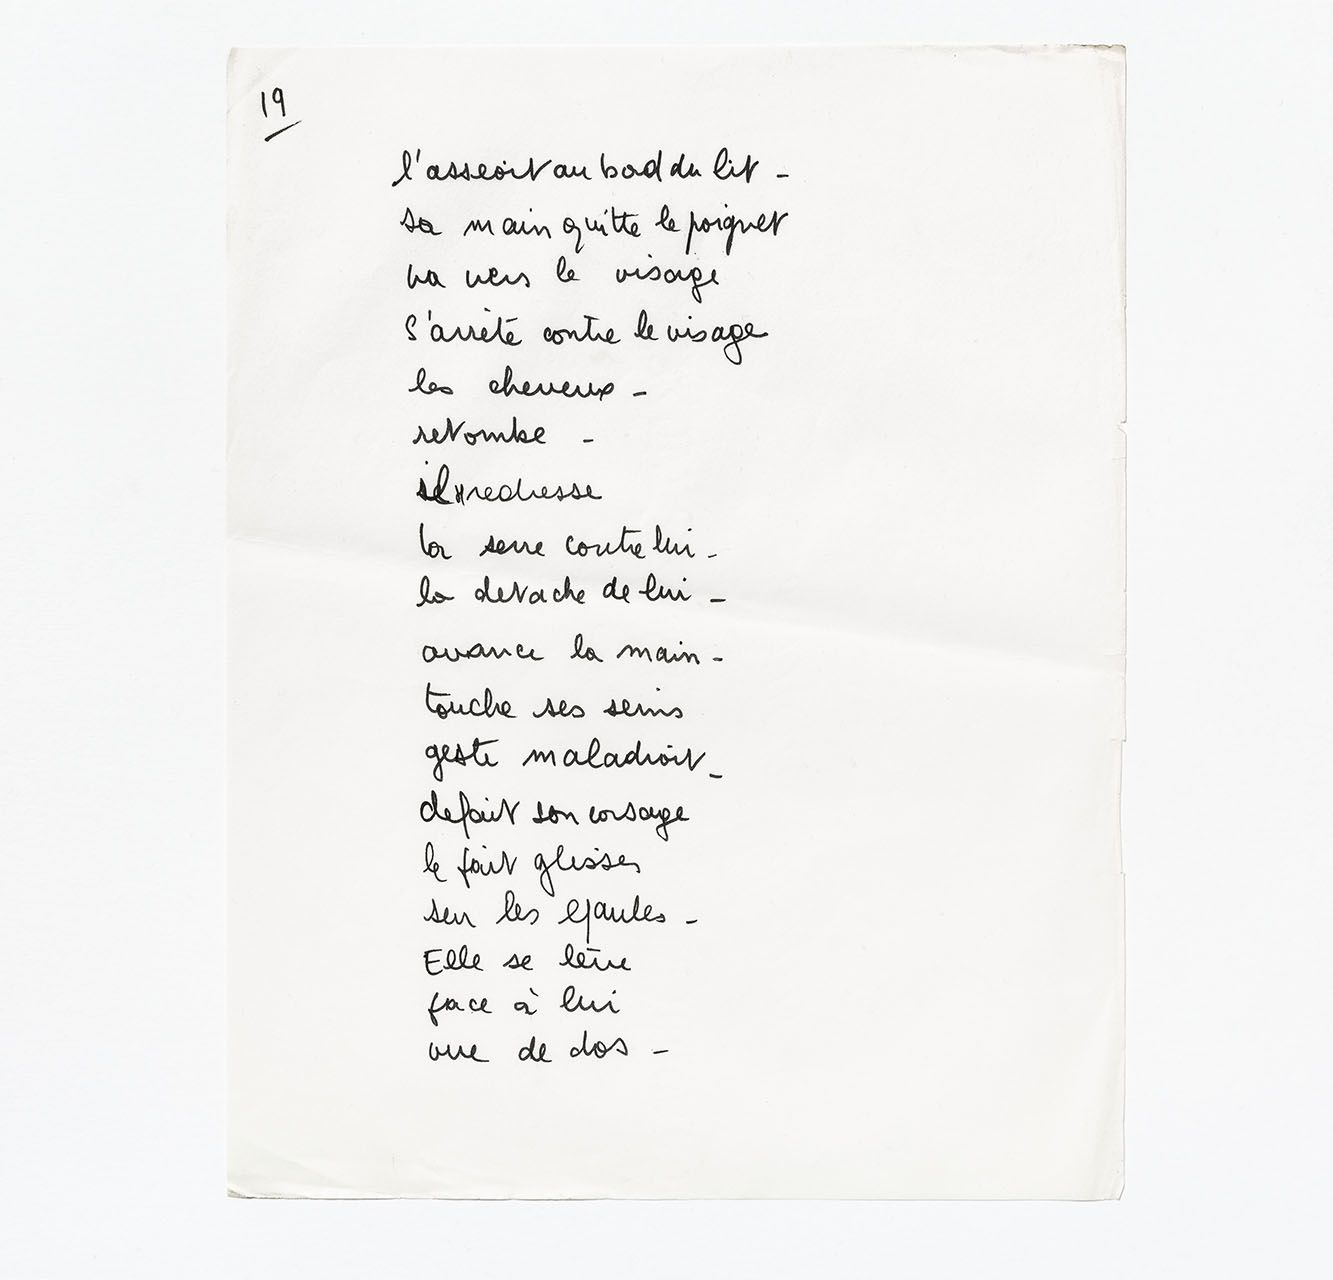 19
l'asseoit au bord du lit -
sa main quitte le poignet
va vers le visage
s'arrête contre le visage
les cheveux -
retombe -
il redresse
la serre contre lui -
la detache de lui -
avance la main -
touche ses seins
geste maladroit -
defait son corsage
le fait glisser
sur les epaules -
Elle se lève
face à lui
vue de dos -